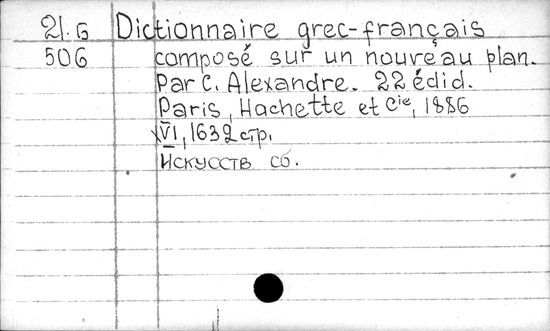 21.6 Dictionnaire grec-français
506 composé sur un nouveau plan.
Par C. Alexandre. 22 édid.
Paris, Hachette et Cie, 1886
VI, 1632 стр.
Искусств сб.